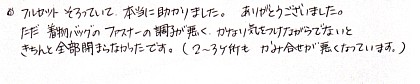 フルセット そろっていて、本当に助かりました。 ありがとうございました。
ただ 着物バッグの ファスナーの 調子が悪く、かなり気をつけながらでないと
きちんと全部閉まらなかったです。(2〜3ヶ所も かみ合せが悪くなっています。)